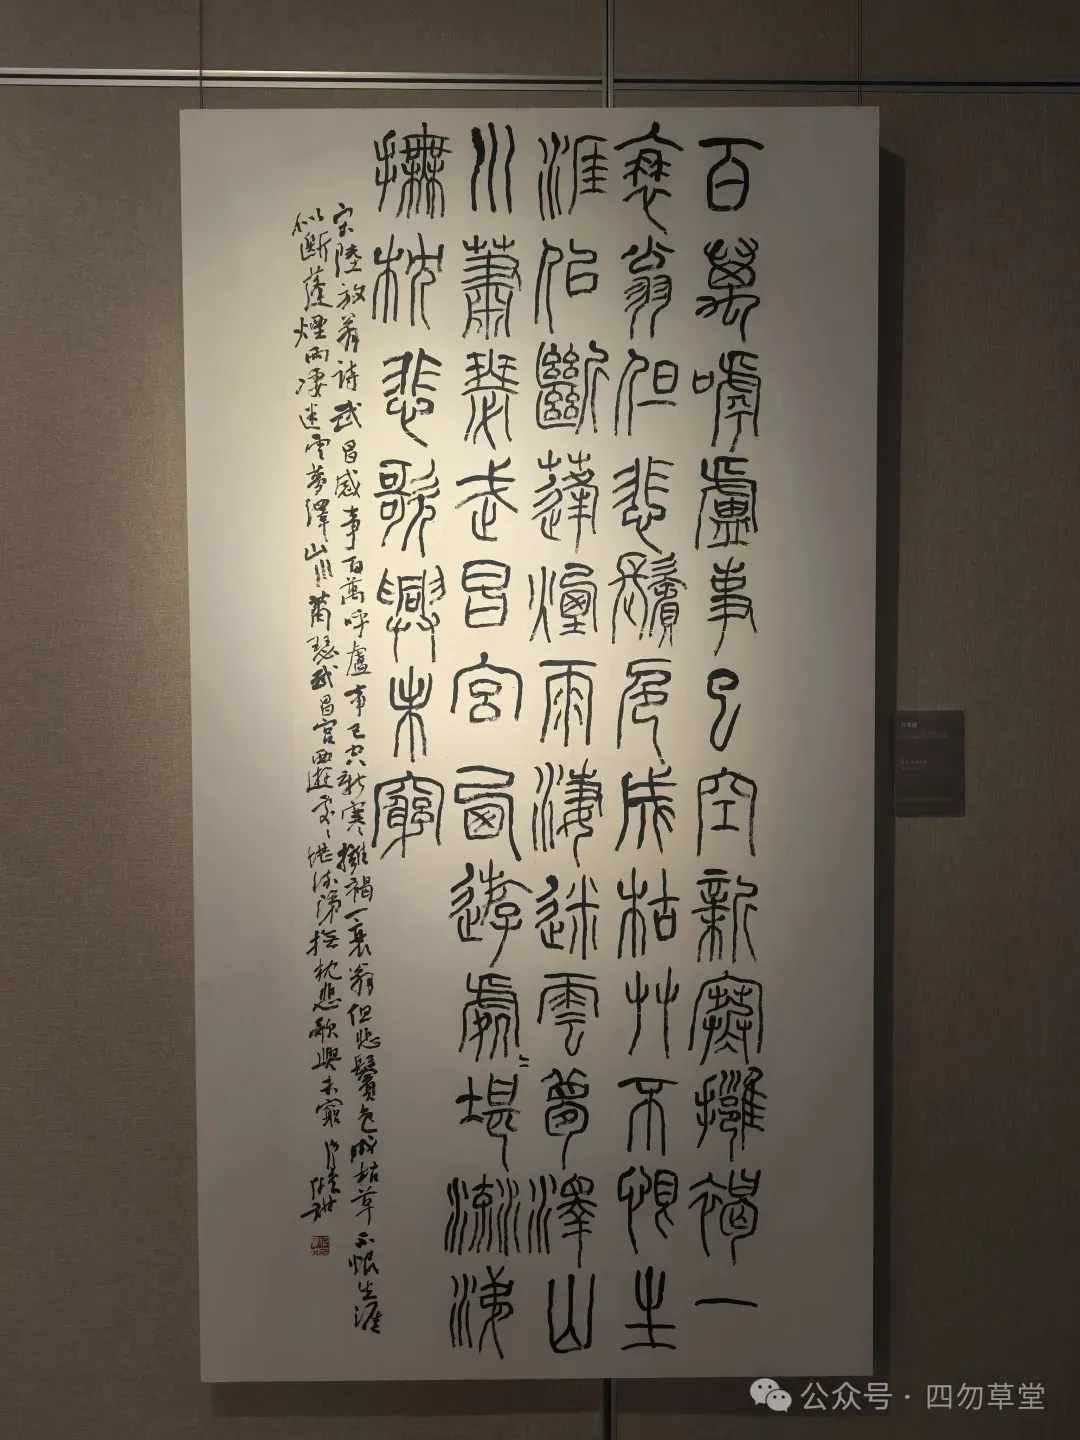 百萬嘑盧事已空新寒擁褐一
衰翁但悲鬢色成枯艸不恨生
涯佀斷蓬煙雨淒迷雲夢澤山
川蕭瑟武昌宮西遊處〻堪流涕
撫枕悲歌興未窮
宋陸放翁詩武昌感事百萬呼盧事已空新寒擁褐一衰翁但悲鬢色成枯草不恨生涯
似斷蓬煙雨凄迷雲夢澤山川蕭瑟武昌宮西遊處〻堪流涕撫枕悲歌興未窮
公众号 · 四勿草堂